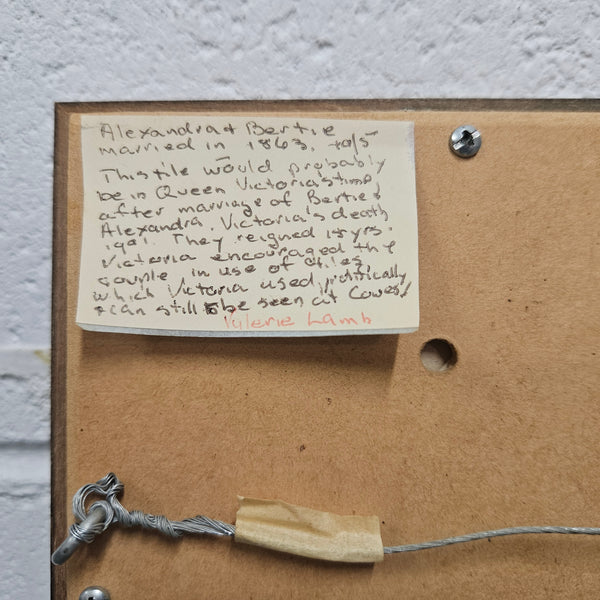 Alexandra + Bertie
married in 1863.
This tile would probably
be in Queen Victoria's time,
after marriage of Bertie +
Alexandra. Victoria's death
1901. They reigned yrs.
Victoria encouraged the
couple in use of tiles
which Victoria used prolifically
+ can still be seen at Cowes!
Valerie Lamb